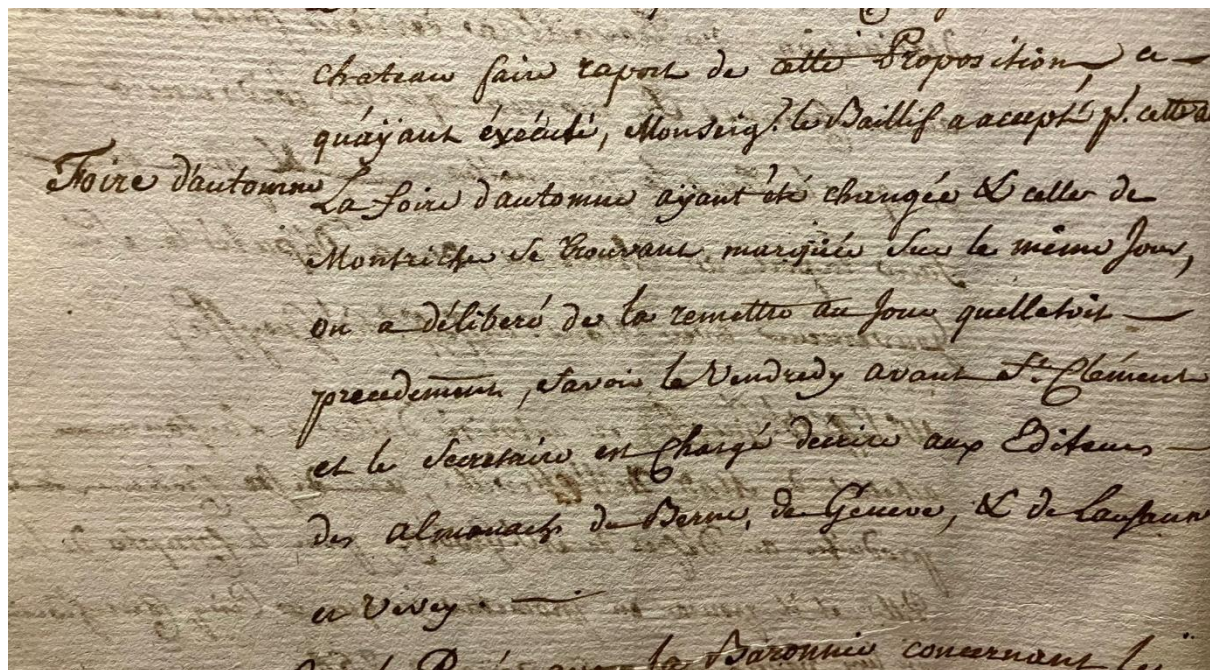 chateau faire raport de cette Proposition, ce
qu'aÿant éxécuté, Monseigr. le Baillif a accepté pr. cette a
Foire d'automne
La foire d'automne aÿant été changée & celle de
Montriche se trouvant marquée sur le même Jour,
on a délibéré de la remettre au Jour quelletoit
precedemment, savoir le Vendredy avant St. Clément
et le Secretaire est Chargé decrire aux Editeurs
des almanachs de Berne, de Géneve, & de Lausanne
et Vevey
la Baronnie concernant